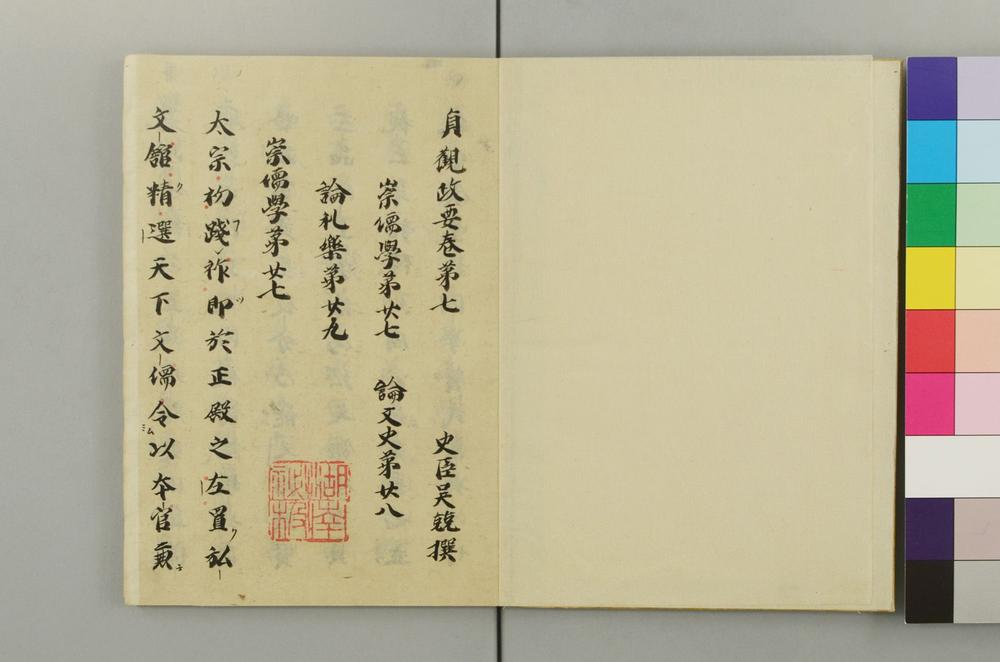 貞觀政要卷第七 史臣吴兢撰
崇儒學第廿七 論文史第廿八
論礼樂第廿九
崇儒學第廿七
太宗初踐祚即於正殿之左置弘
文館精選天下文儒令以本官兼